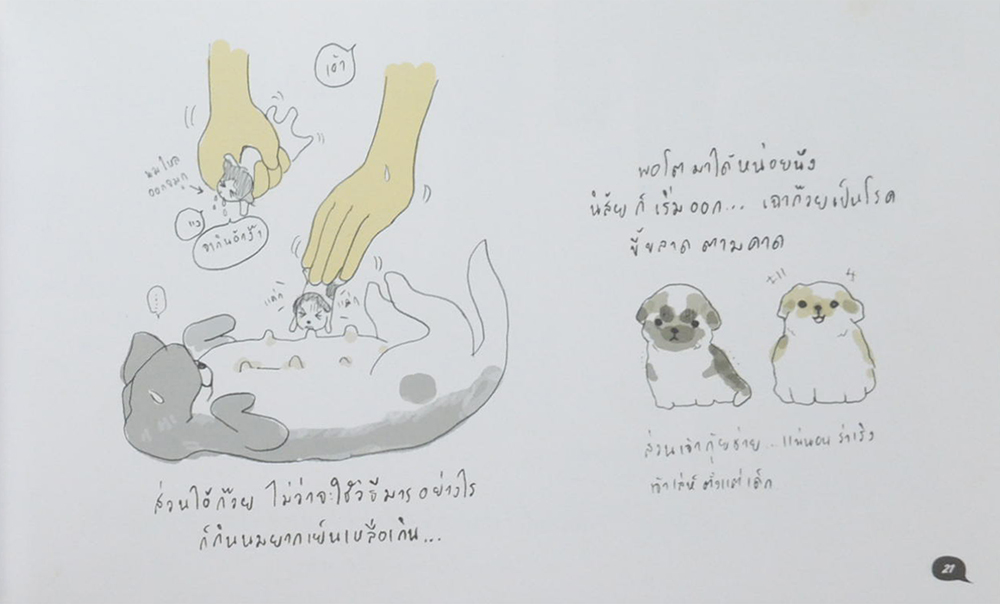 เอ้า
นมไหล
ออกจมูก
แง
จากินอีกง้า
....
แค่ก
แค่ก
ส่วนไอ้ก๊วย ไม่ว่าจะใช้วิธีมารอย่างไร
ก็กินนมยากเย็นเหลือเกิน...
พอโตมาได้หน่อยนึง
นิสัยก็เริ่มออก... เฉาก๊วยเป็นโรค
ขี้ขลาดตามคาด
ส่วนเจ้ากุ้ยช่าย...แน่นอน ร่าเริง
เจ้าเล่ห์ตั้งแต่เด็ก
21